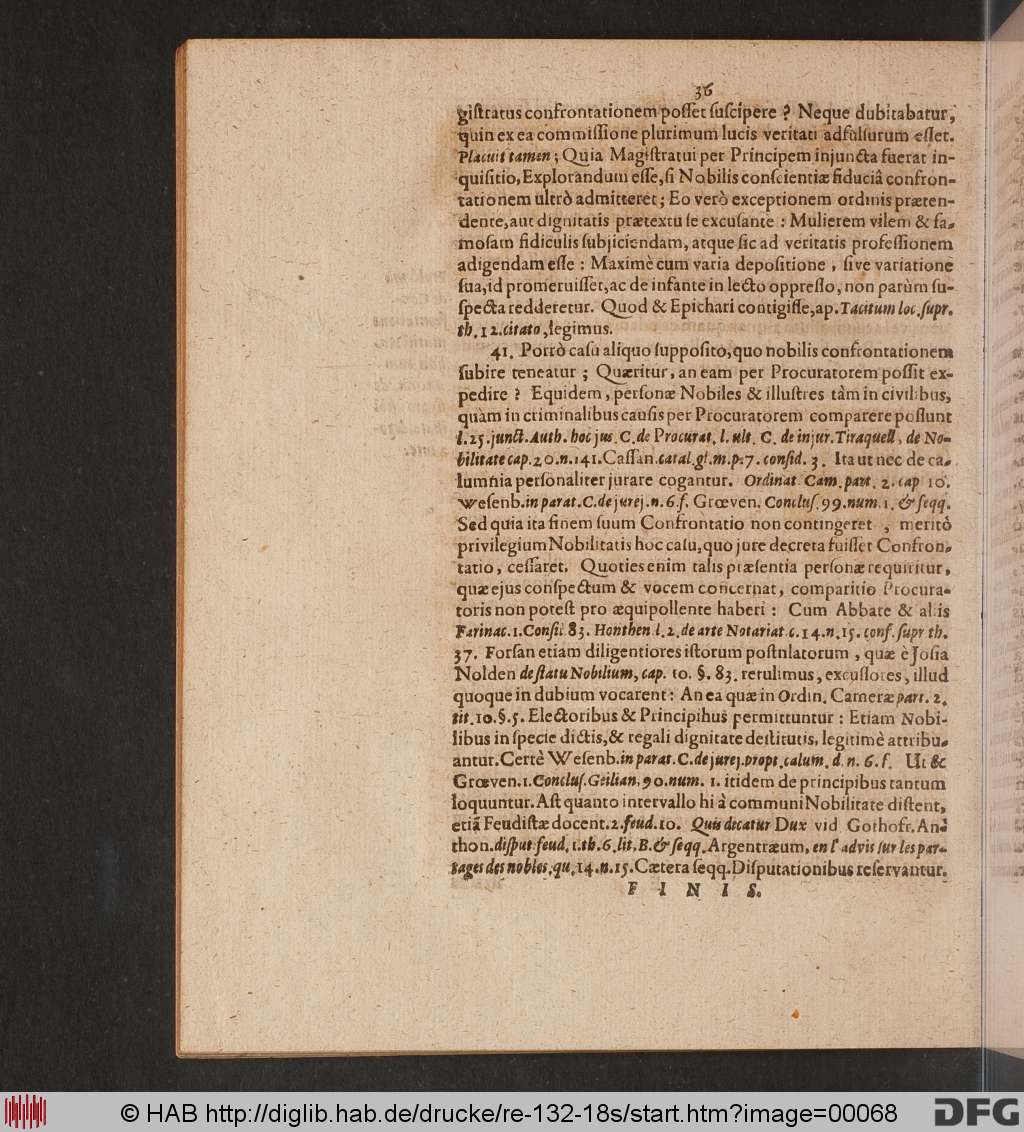 36
giſtratus confrontationem poſſet ſuſcipere ? Neque dubitabatur,
quin ex ea commiſſione plurimum lucis veritati adfulſurum eſſet.
Placuit tamen ; Quia Magiſtratui per Principem injuncta fuerat in-
quiſitio, Explorandum eſſe, ſi Nobilis conſcientiæ fiduciâ confron-
tationem ultrò admitteret ; Eo verò exceptionem ordinis præten-
dente, aut dignitatis prætextu ſe excuſante : Mulierem vilem & fa-
moſam fidiculis ſubjiciendam, atque ſic ad veritatis profeſſionem
adigendam eſſe : Maximè cum varia depoſitione, ſive variatione
ſua, id promeruiſſet, ac de infante in lecto oppreſſo, non parùm ſu-
ſpecta redderetur. Quod & Epichari contigiſſe, ap. Tacitum loc. ſupr.
th. 12. citato, legimus.
41. Porrò caſu aliquo ſuppoſito, quo nobilis confrontationem
ſubire teneatur ; Quæritur, an eam per Procuratorem poſſit ex-
pedire ? Equidem, perſonæ Nobiles & illuſtres tàm in civilibus,
quàm in criminalibus cauſis per Procuratorem comparere poſſunt
l. 25. junct. Auth. hoc jus. C. de Procurat. l. ult. C. de injur. Tiraquell. de No-
bilitate cap. 20. n. 141. Caſſan. catal. gl. m. p. 7. conſid. 3. Ita ut nec de ca-
lumnia perſonaliter jurare cogantur. Ordinat. Cam. part. 2. cap 10.
Weſenb. in parat. C. de jurej. n. 6. f. Grœven. Concluſ. 99. num. 1. & ſeqq.
Sed quia ita finem ſuum Confrontatio non contingeret, meritò
privilegium Nobilitatis hoc caſu, quo jure decreta fuiſſet Confron-
tatio, ceſſaret. Quoties enim talis præſentia perſonæ requiritur,
quæ ejus conſpectum & vocem concernat, comparitio Procura-
toris non poteſt pro æquipollente haberi : Cum Abbate & aliis
Farinac. 1. Conſil 83. Honthen l. 2. de arte Notariat. c. 14. n. 15. conf. ſupr th.
37. Forſan etiam diligentiores iſtorum poſtnlatorum, quæ è Joſia
Nolden de ſtatu Nobilium, cap. 10. §. 83. retulimus, excuſſores, illud
quoque in dubium vocarent : An ea quæ in Ordin. Cameræ part. 2.
tit. 10. §. 5. Electoribus & Principihus permittuntur : Etiam Nobi-
libus in ſpecie dictis, & regali dignitate deſtitutis, legitimè attribu-
antur. Certè Weſenb. in parat. C. de jurej. propt. calum. d. n. 6. f. Ut &
Grœven. 1. Concluſ. Geilian. 90. num. 1. itidem de principibus tantum
loquuntur. Aſt quanto intervallo hi à communi Nobilitate diſtent,
etiã Feudiſtæ docent. 2. feud. 10. Quis dicatur Dux vid Gothofr. An-
thon. diſput. feud. 1. th. 6. lit. B. & ſeqq. Argentræum, en l' advis ſur les par-
tages des nobles. qu. 14. n. 15. Cætera ſeqq. Diſputationibus reſervantur.
F I N I S.
© HAB http://diglib.hab.de/drucke/re-132-18s/start.htm?image=00068
DFG